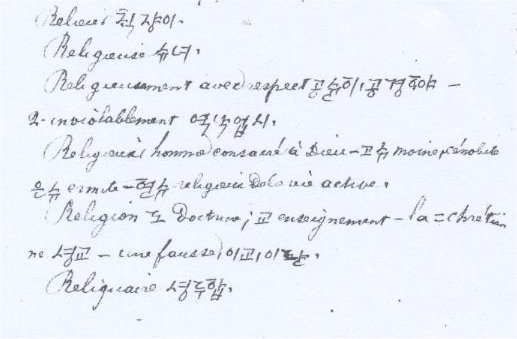 Relieur 칙쟝이.
Religieuse 슈녀.
Religieusement avec respect 공슌이, 공경ᄒᆞ야 –
2. inviolablement 역악업시.
Religieux homme consacré à Dieu – 고슈 moine, cénobite
은슈 ermite – 현슈 religieux de la vie active.
Religion 도 Doctrine; 교 enseignement – la = chrétien
ne 셩교 – une fausse, 이교, 이단.
Reliquaire 셩두합.